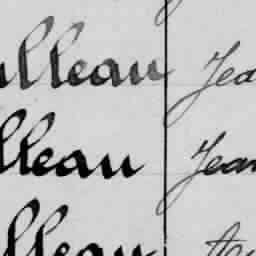 ulleau Jea
lleau Jean
lleau